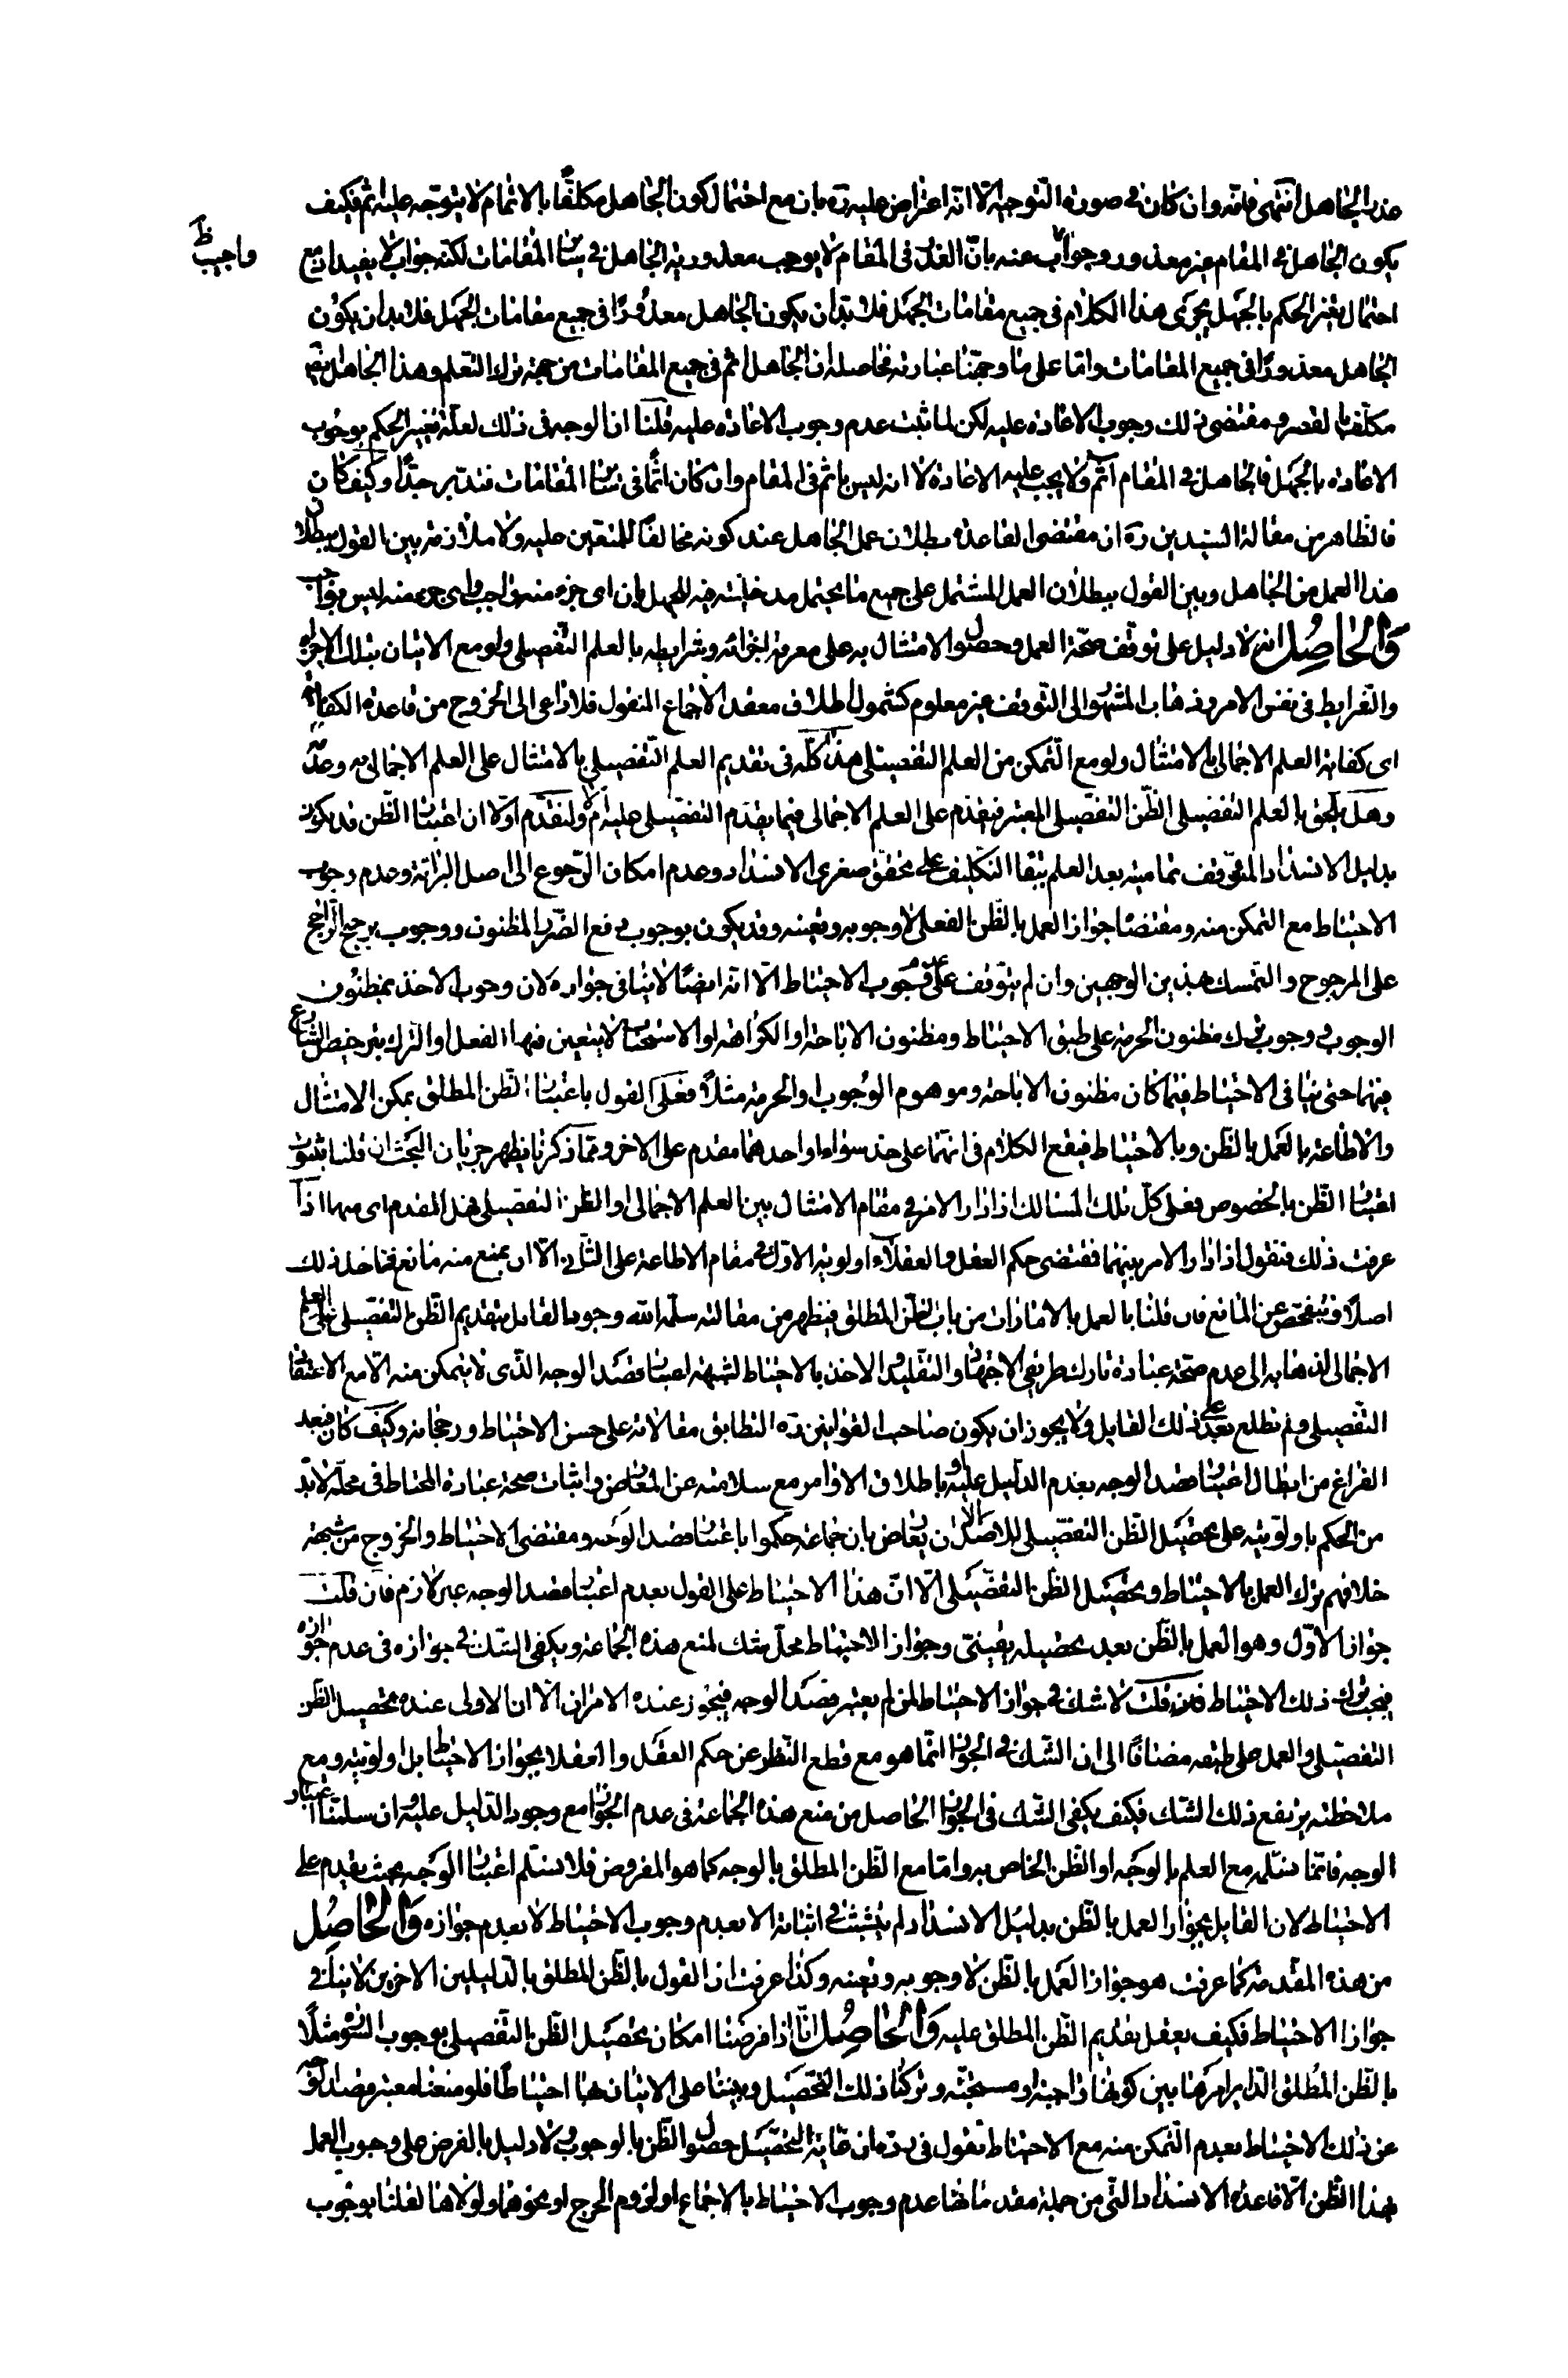 عذر الجاهل انتهى فانه وان كان في صورة التوجيه الا انه اعتراض عليه ره بان مع احتمال كون الجاهل مكلفا بالاتمام لا يتوجه عليه اثم فكيف
يكون الجاهل في المقام غير معذور وجوابا عنه بان العذر في المقام لا يوجب معذورية الجاهل في سائر المقامات لكنه جواب لا يفيد اذ مع
واجيب ظ
احتمال تغير الحكم بالجهل يجرى هذا الكلام في جميع مقامات الجهل فلا بد ان يكون الجاهل معذورا في جميع مقامات الجهل فلا بد ان يكون
الجاهل معذورا في جميع المقامات واما على ما وجهنا عبارته فحاصله ان الجاهل اثم في جميع المقامات من جهة ترك التعلم وهذا الجاهل
مكلف بالقصر ومقتضى ذلك وجوب الاعادة عليه لكن لما ثبت عدم وجوب الاعادة عليه قلنا ان الوجه في ذلك لعله تغيير الحكم بوجوب
الاعادة بالجهل فالجاهل في المقام اثم ولا يجب عليه الاعادة لا انه ليس باثم في المقام وان كان اثما في سائر المقامات فتدبر جيدا وكيف كان
فالظاهر من مقالة السيدين ره ان مقتضى القاعدة بطلان عمل الجاهل عند كونه مخالفا للمتعين عليه ولا ملازمة بين القول ببطلان
هذا العمل من الجاهل وبين القول ببطلان العمل المشتمل على جميع ما يحتمل مدخليته فيه للجهل بان اى جزء منه واجب واى جزء منه ليس بواجب
والحاصل انه لا دليل على توقف صحة العمل وحصول الامتثال به على معرفة اجزائه وشرايطه بالعلم التفصيلى ولو مع الاتيان بتلك الاجزاء
والشرايط في نفس الامر وذهاب المشهور الى التوقف غير معلوم كشمول اطلاق معقد الاجماع المنقول فلا داعى الى الخروج من قاعدة الكفاية
اى كفاية العلم الاجمالى بالامتثال ولو مع التمكن من العلم التفصيلى هذا كله في تقديم العلم التفصيلى بالامتثال على العلم الاجمالى به وعدمه
وهل يلحق بالعلم التفصيلى الظن التفصيلى المعتبر فيقدم على العلم الاجمالى فيما يقدم التفصيلى عليه ام لا ولنقدم اولا ان اعتبار الظن قد يكون
بدليل الانسداد المتوقف تماميته بعد العلم ببقاء التكليف على تحقق صغرى الانسداد وعدم امكان الرجوع الى اصل البرائة وعدم وجوب
الاحتياط مع التمكن منه ومقتضاه جواز العمل بالظن الفعلى لا وجوبه وتعينه وقد يكون بوجوب دفع الضرر المظنون ووجوب ترجيح الراجح
على المرجوح والتمسك بهذين الوجهين وان لم يتوقف على عدم وجوب الاحتياط الا انه ايضا لا ينافى جوازه لان وجوب الاخذ بمظنون
الوجوب ووجوب ترك مظنون الحرمة على طبق الاحتياط ومظنون الاباحة او الكراهة او الاستحباب لا يتعين فيها الفعل او الترك بترخيص الشارع
فيهما حتى ينافى الاحتياط فيما كان مظنون الاباحة وموهوم الوجوب او الحرمة مثلا فعلى القول باعتبار الظن المطلق يمكن الامتثال
والاطاعة بالعمل بالظن وبالاحتياط فيقع الكلام في انهما على حد سواء او احدهما مقدم على الاخر ومما ذكرنا يظهر جريان البحث ان قلنا بثبوت
اعتبار الظن بالخصوص فعلى كل تلك المسالك اذا دار الامر في مقام الامتثال بين العلم الاجمالى او الظن التفصيلى هل المقدم اى منهما اذا
عرفت ذلك فنقول اذا دار الامر بينهما فمقتضى حكم العقل والعقلاء اولوية الاول في مقام الاطاعة على الثانى الا ان يمنع منه مانع فخذ ذلك
اصلا وتفحص عن المانع فان قلنا بالعمل بالامارات من باب الظن المطلق فيظهر من مقالته سلمه الله وجود القائل بتقديم الظن التفصيلى على العلم
الاجمالى لذهابه الى عدم صحة عبادة تارك طريقى الاجتهاد والتقليد والاخذ بالاحتياط لشبهة اعتبار قصد الوجه الذى لا يتمكن منه الا مع الاعتقاد
التفصيلى ولم نطلع بعد على ذلك القايل ولا يجوز ان يكون صاحب القوانين ره لتطابق مقالاته على حسن الاحتياط ورجحانه وكيف كان فبعد
الفراغ من ابطال اعتبار قصد الوجه بعدم الدليل عليه او باطلاق الاوامر مع سلامته عن المعارض واثبات صحة عبادة المحتاط في محله لا بد
من الحكم باولويته على تحصيل الظن التفصيلى للاصل الا ان يعارض بان جماعة حكموا باعتبار قصد الوجه ومقتضى الاحتياط والخروج من شبهة
خلافهم ترك العمل بالاحتياط وتحصيل الظن التفصيلى الا ان هذا الاحتياط على القول بعدم اعتبار قصد الوجه غير لازم فان قلت
جواز الاول وهو العمل بالظن بعد تحصيله يقينى وجواز الاحتياط محل شك لمنع هذه الجماعة ويكفى الشك في جوازه في عدم جوازه
فيجب ترك ذلك الاحتياط قلت لا شك في جواز الاحتياط لمن لم يعتبر قصد الوجه فيجوز عنده الامران الا ان الاولى عنده تحصيل الظن
التفصيلى والعمل على طبقه مضافا الى ان الشك في الجواز انما هو مع قطع النظر عن حكم العقل والعقلاء بجواز الاحتياط بل اولويته ومع
ملاحظته يرتفع ذلك الشك فكيف يكفى الشك في الجواز الحاصل من منع هذه الجماعة في عدم الجواز مع وجود الدليل عليه وان سلمنا اعتبار
الوجه فانما نسلمه مع العلم بالوجه او الظن الخاص به واما مع الظن المطلق بالوجه كما هو المفروض فلا نسلم اعتبار الوجه بحيث يقدم على
الاحتياط لان القايل بجواز العمل بالظن بدليل الانسداد لم يتشبث في اثباته الا بعدم وجوب الاحتياط لا بعدم جوازه والحاصل
من هذه المقدمة كما عرفت هو جواز العمل بالظن لا وجوبه وتعينه وكذا عرفت ان القول بالظن المطلق بالدليلين الاخرين لا ينافى
جواز الاحتياط فكيف يعقل تقديم الظن المطلق عليه والحاصل انا اذا فرضنا امكان تحصيل الظن التفصيلى بوجوب السورة مثلا
بالظن المطلق الدائر امرها بين كونها واجبة او مستحبة وتركنا ذلك التحصيل وبنينا على الاتيان بها احتياطا فلو منعنا معتبر قصد الوجه
عن ذلك الاحتياط بعدم التمكن منه مع الاحتياط نقول في رده ان غاية التحصيل حصول الظن بالوجوب ولا دليل بالفرض على وجوب العمل
بهذا الظن الا قاعدة الانسداد التى من جملة مقدماتها عدم وجوب الاحتياط بالاجماع او لزوم الحرج او نحوهما ولولاها لقلنا بوجوب